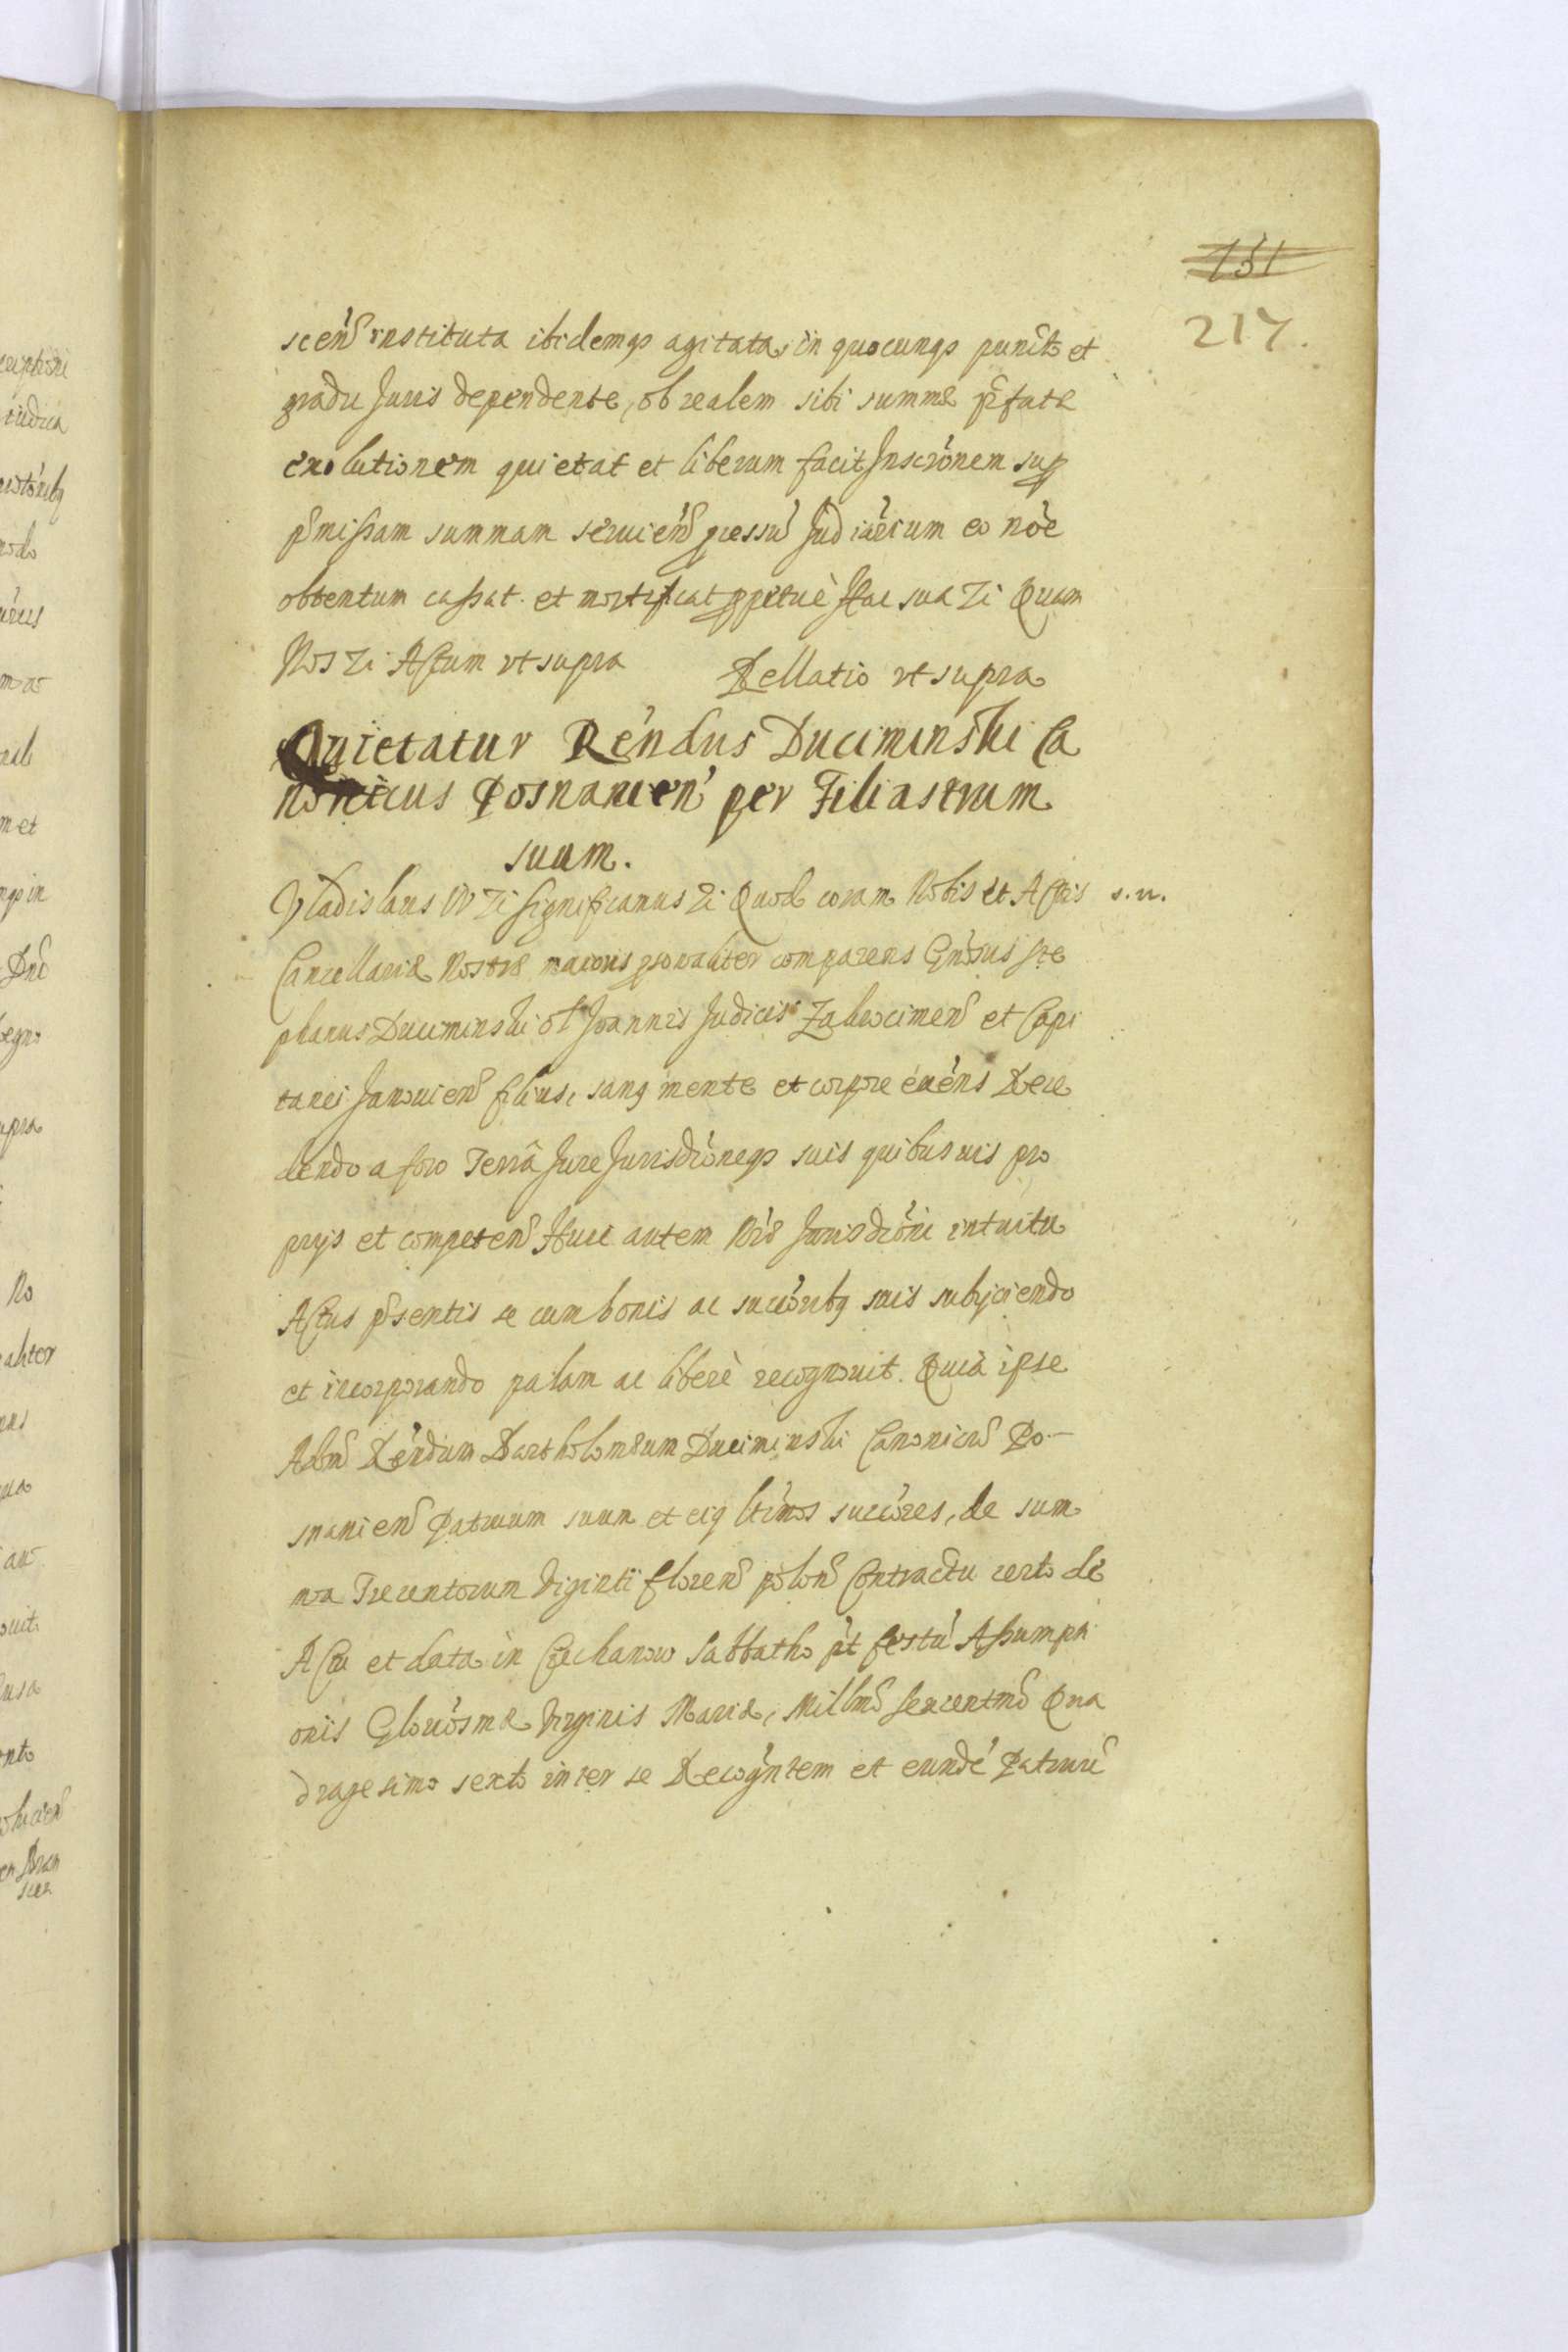 151
217.
scen̄ instituta ibidemqȝ agitata, in quocunqȝ puncto et
gradu Juris dependente, ob realem sibi summæ p̄fatæ
exolutionem quietat et liberum facit Inscrōnem sup
p̄missam summam servien̄ pcessū Judiarium eo nōe
obtentum cassat et mortificat ppetuè Hac sua Zi Quam
Nos Zi Actum vt supra Rellatio vt supra
Quietatur Rēndus Duciminski Ca
nonicus Posnanien̄ per Filiastrum
suum.
Vladislaus IV Zi Significamus Zi Quod coram Nobis et Actis s.n.
Cancellariæ Nostræ maioris psonaliter comparens Gnōsus Ste
phanus Duciminski ol Joannis Judicis Zakrocimen̄ et Capi
tanei Janovien̄ filius, sanq mente et corpore exēns Rece
dendo a foro Terrā Jure Jurisdrōneqȝ suis quibusuis pro
prijs et competen̄ Huic autem Nræ Jurisdrōni intuitu
Actus p̄sentis se cum bonis ac succōribq suis subijciendo
et incorporando palam ac liberè recognouit. Quia ipse
Adm̄ Rēndum Bartholomæum Duciminski Canonicū Po-
snanien̄ Patruum suum et eiq ltīmos succōres, de sum
ma Trecentorum Viginti floren̄ polon̄ Contractu certo de
Actu et data in Ciechanow Sabbatho pt festū Assumpti
onis Gloriōsmæ Virginis Mariæ, Millmō Sexcentmō Qua
dragesimo sexto inter se Recogntem et eundē Patruū